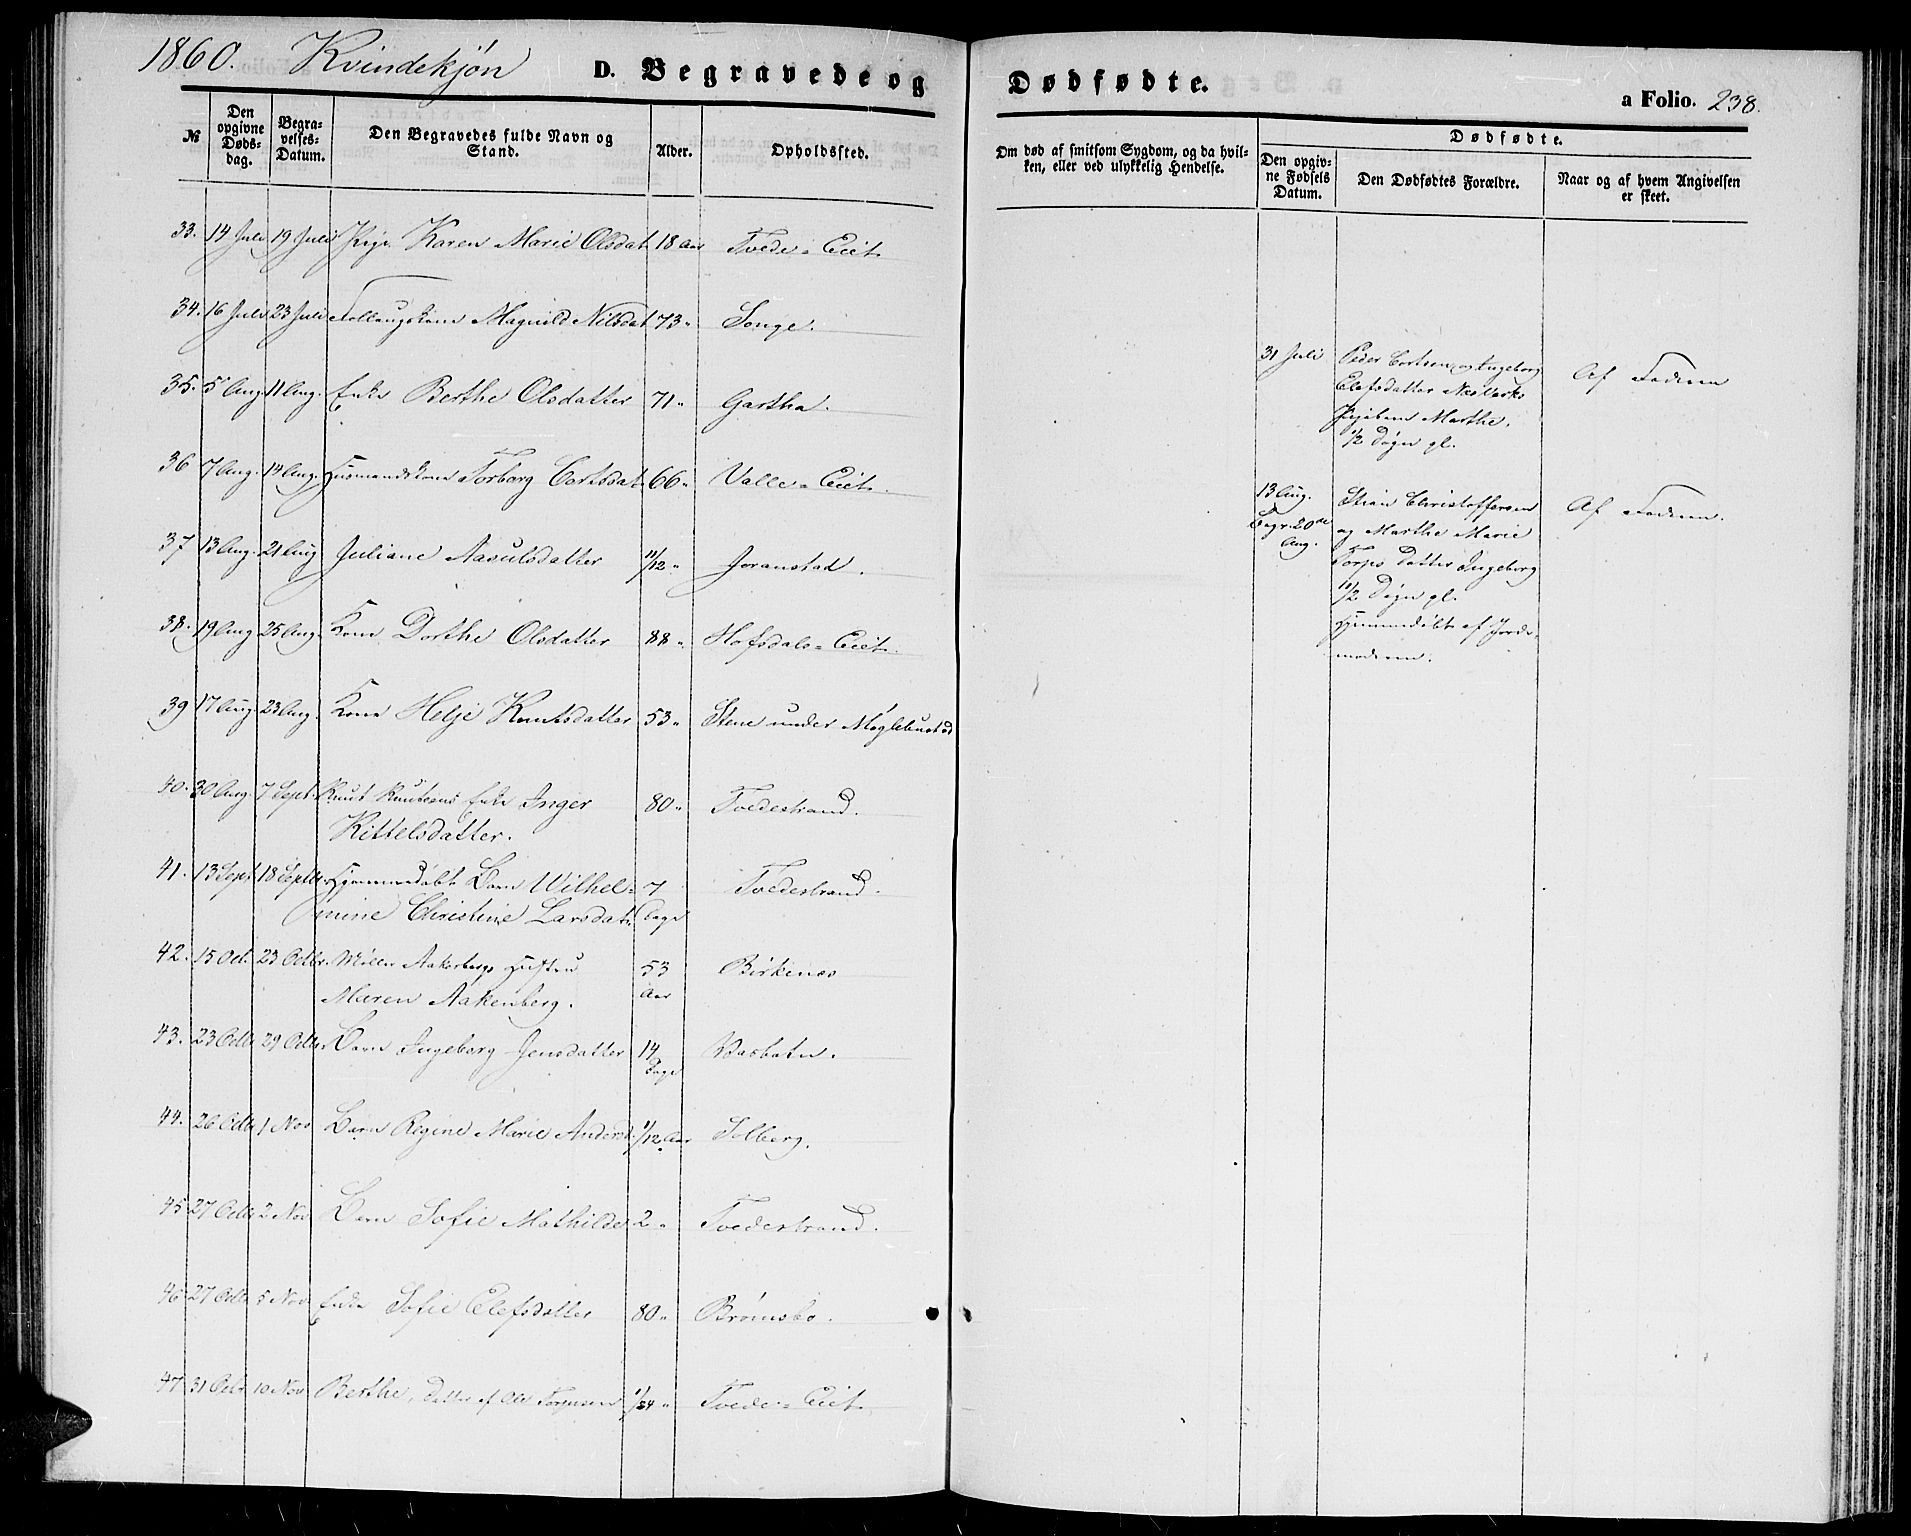 1860. Kvindekjøn D. Begravede og Dødfødte. a Folio. 238.
№ Den opgivne Døds-dag. Begra-velses-Datum. Den Begravedes fulde Navn og Stand. Alder. Opholdssted. Om død af smitsom Sygdom, og da hvil-ken, eller ved ulykkelig Hendelse. Dødfødte.
Den opgiv-ne Fødsels Datum. Den Dødfødtes Forældre. Naar og af hvem Angivelsen er skeet.
33. 14 Juli 19 Juli Pige Karen Marie Olsdat. 18 Aar Tvede-Eiet
34. 16 Juli 23 Juli Magnild Nilsdat 73 " Songe.
35. 5 Aug. 11 Aug. Enke Berthe Olsdatter 71 " Gartha.
36 7 Aug. 14 Aug. Husmandskone Torborg 66 " Valle-Eiet.
37 13 Aug. 21 Aug Juliane Aasulsdatter 11/12 " Joranstad.
38. 19 Aug 25 Aug. Kone Dorthe Olsdatter 88 " Hofsdals-Eiet.
39 17 Aug. 23 Aug. Kone Helje Knutsdatter 53 " Stene under Møglebustad
40. 30 Aug. 7 Sept. Knut Knutsens Enke Inger
Kittelsdatter. 80 " Tvedestrand.
41. 13 Sept 18 Septbr. Hjemmedøbt Barn Wilhel-
mine Christine Larsdat. 7 Dage Tvedestrand.
42. 15 Oct. 23 Octbr. Møller Aakerbergs Hustru
Maren Aakerberg. 53 Aar Birkenes
43. 23 Octb 29 Octbr. Barn Ingeborg Jensdatter 14 Dage Vasbotn.
44. 26 Octb 1 Nov Barn Regine Marie Andersd. 1/12 Aar Solberg.
45 27 Octb 2 Nov Barn Sofie Mathilde 2 " Tvedestrand.
46 27 Octb 5 Nov Enke Sofie Elefsdatter 80 " Brømsbo.
47 31 Octr 10 Nov Berthe, Datter af Ole Torjusen 1/24 " Tvede-Eiet.
31 Juli Peder og Ingeborg
Elefsdatter Næsverks
Pigebarn Marthe.
1/2 Døgn gl.
Af Faderen
13 Aug.
Begr. 20de
Aug.
Stian Christoffersen
og Marthe Marie
Torps Datter Ingeborg
1/2 Døgn gl.
Hjemmedøbt af Jorde-
moderen.
Af Faderen.